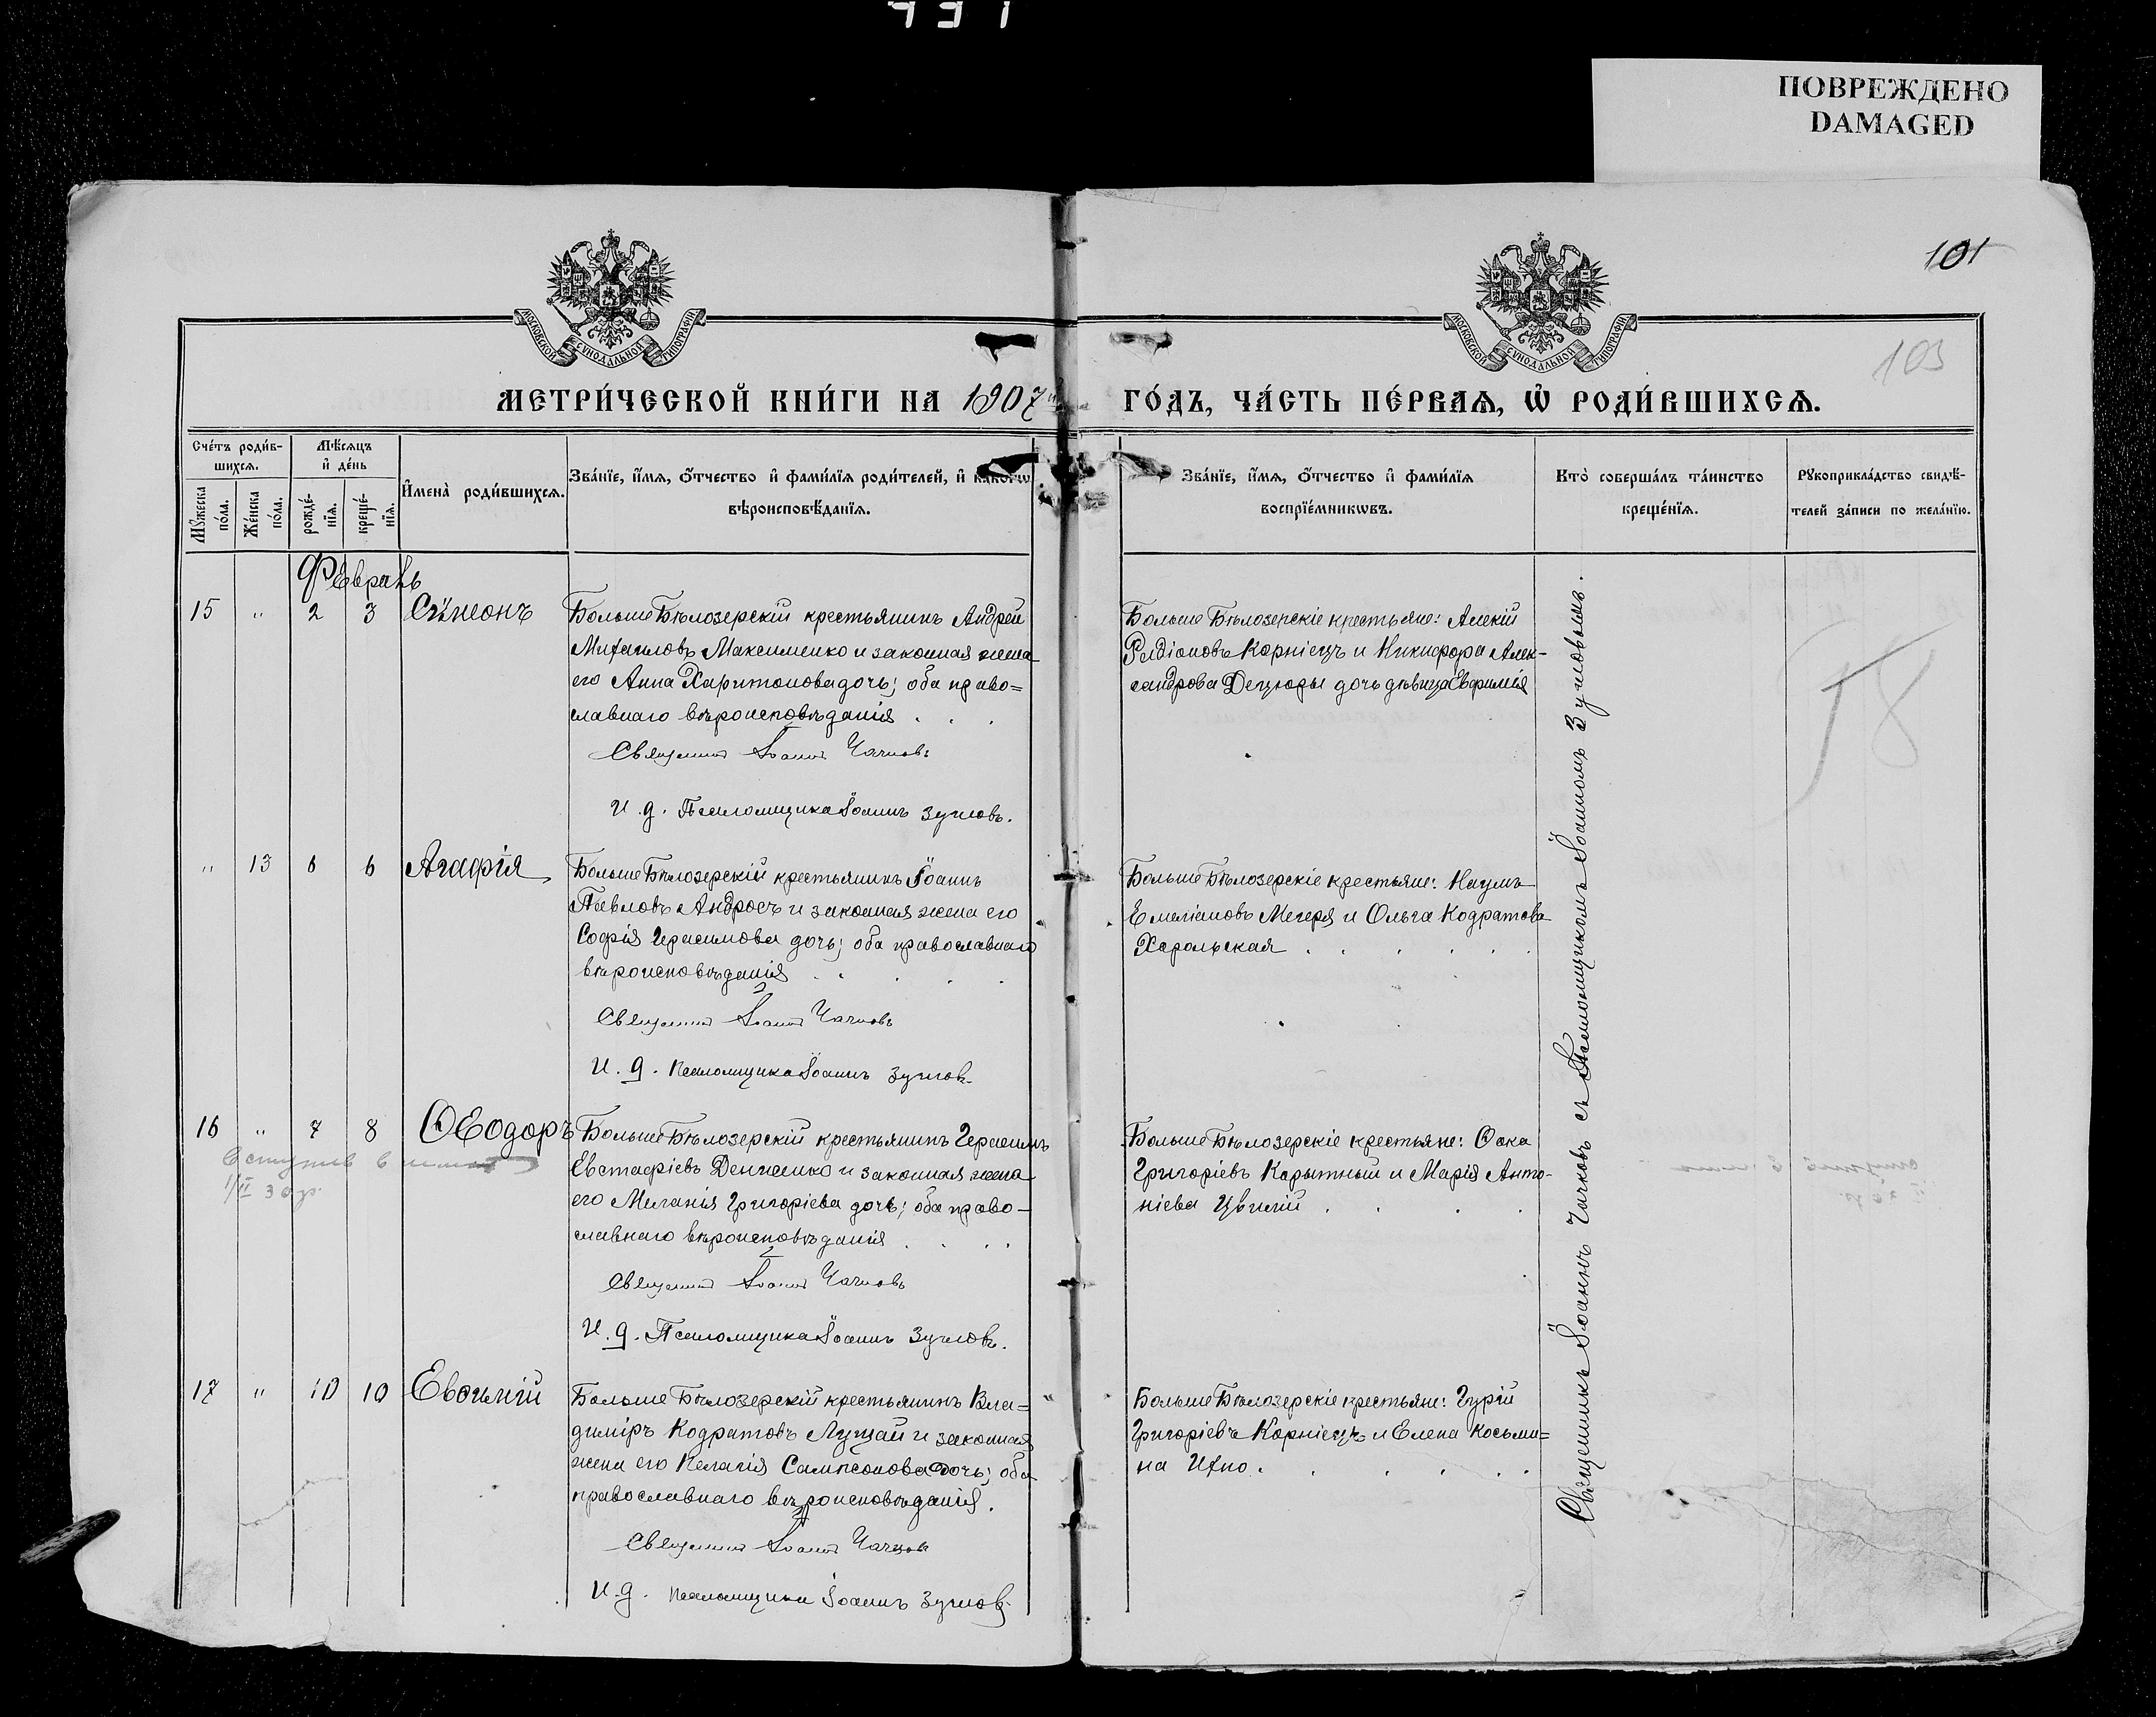 ПОВРЕЖДЕНО
DAMAGED
101
103
МОСКОВСКОЙ СѴНОДАЛЬНОЙ ТИПОГРАФІИ
МОСКОВСКОЙ СѴНОДАЛЬНОЙ ТИПОГРАФІИ
МЕТРИ́ЧЕСКОЙ КНИ́ГИ НА 1907 ГО́ДЪ, ЧА́СТЬ ПЕ́РВАѦ, Ѡ҆ РОДИ́ВШИХСѦ.
Сче́тъ роди́в-
шихсѧ.
Мѣ́сѧцъ
и҆ де́нь
Мꙋ́жеска по́ла.
Же́нска по́ла.
рожде́-нїѧ.
креще́-нїѧ.
И҆мена̀ роди́вшихсѧ.
Зва́нїе, и҆́мѧ, ѻ҆́тчество и҆ фами́лїѧ роди́телей, и҆ како́гѡ
вѣ́роисповѣ́данїѧ.
Зва́нїе, и҆́мѧ, ѻ҆́тчество и҆ фами́лїѧ
воспрїе́мникѡвъ.
Кто̀ соверша́лъ та́инство
креще́нїѧ.
Рꙋкоприкла́дство свидѣ́-
телей за́писи по жела́нїю.
Февраль
15 " 2 3 Сѵмеонъ
Больше Бѣлозерскій крестьянинъ Андрей
Михаиловъ Максименко и законная жена
его Анна Харитонова дочь; оба право=
славнаго вѣроисповѣданія . . .
Священникъ Іоаннъ Чачковъ
И. д. Псаломщика Іоаннъ Зуиловъ.
Больше Бѣлозерскіе крестьяне: Алексій
Родіоновъ Корніецъ и Никифора Алек-
сандрова Децюры дочь дѣвица Евфимія
58
" 13 6 6 Агафія
Больше Бѣлозерскій крестьянинъ Іоаннъ
Павловъ Андросъ и законная жена его
Софія Герасимова дочь; оба православнаго
вѣроисповѣданія . . . .
Священникъ Іоаннъ Чачковъ
И. д. псаломщика Іоаннъ Зуиловъ.
Больше Бѣлозерскіе крестьяне: Наумъ
Емеліановъ Мегеря и Ольга Кодратова
Харольская . . . . . .
16 " 7 8 Ѳеодоръ
Больше Бѣлозерскій крестьянинъ Герасимъ
Евстафіевъ Денисенко и законная жена
его Меланія Григоріева дочь; оба право-
славнаго вѣроисповѣданія . . . .
Священникъ Іоаннъ Чачковъ
И. д. Псаломщика Іоаннъ Зуиловъ.
Больше Бѣлозерскіе крестьяне: Сака
Григоріевъ Карытный и Марія Анто-
ніева Цвилій . . . .
17 " 10 10 Евѳимій
Больше Бѣлозерскій крестьянинъ Вла=
диміръ Кодратовъ Луцай и законная
жена его Пелагія Сампсонова дочь; оба
православнаго вѣроисповѣданія.
Священникъ Іоаннъ Чачковъ
И. д. псаломщика Іоаннъ Зуиловъ
Больше Бѣлозерскіе крестьяне: Гурій
Григоріевъ Корніецъ и Елена Косьми=
на Ихно . . . . . .
Священникъ Іоаннъ Чачковъ съ Псаломщикомъ Іоанномъ Зуиловымъ.